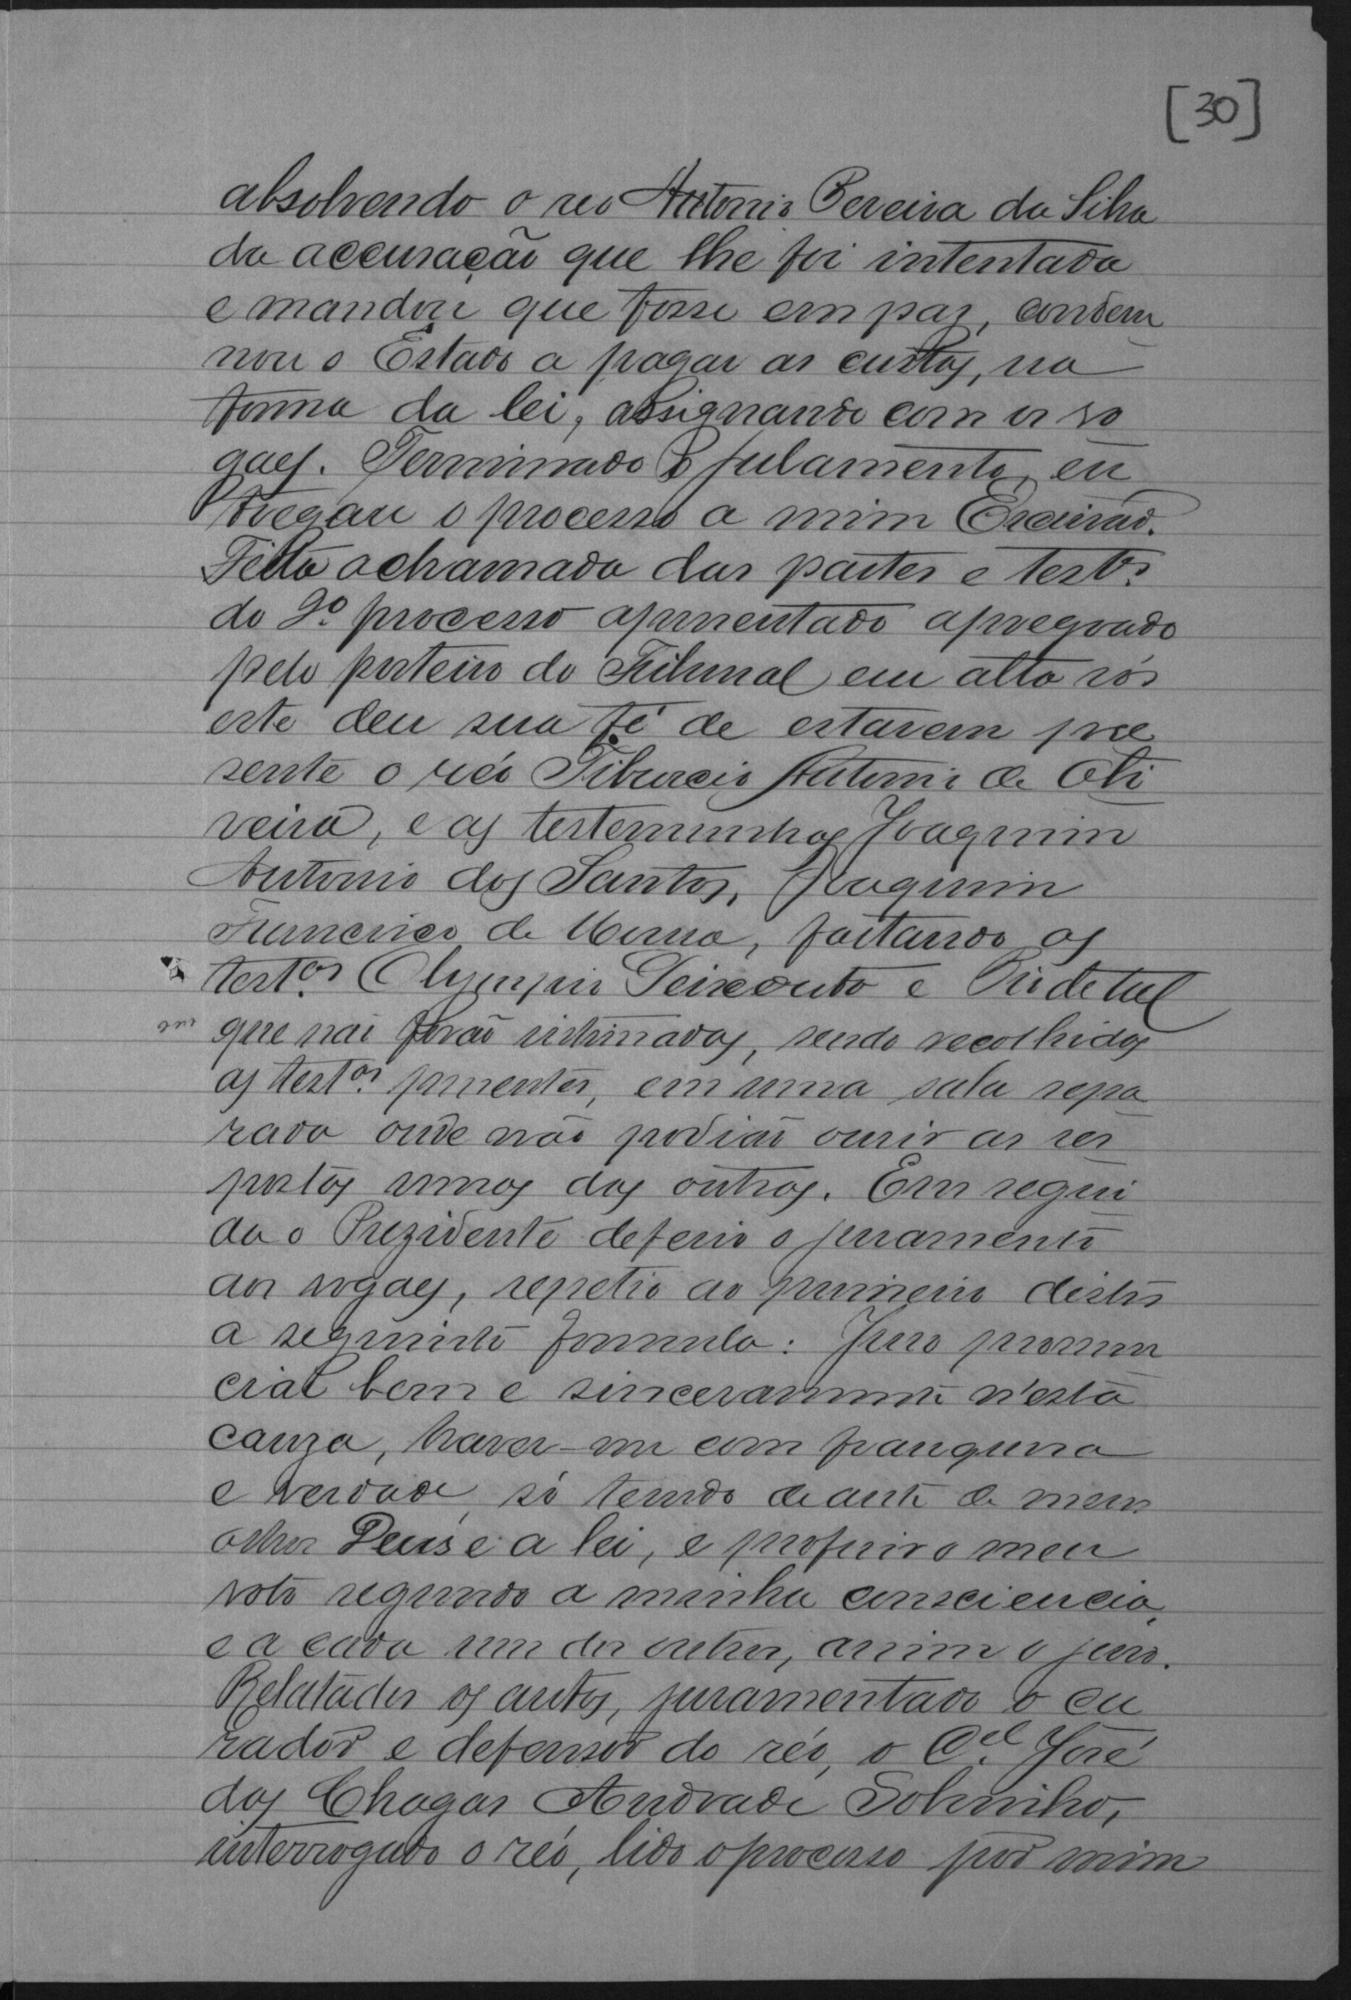 [30]
absolvendo o reo Antonio Pereira da Silva
da accusação que lhe foi intentada
e mandou que fosse em paz, condem
nou o Estado a pagar as custas, na
forma da lei, assignando com os vo
gaes. Terminado o julamento, en
tregau o processo a mim Escrivão.
Feita a chamada das partes e testas
do 2º processo apresentado apregoado
pelo porteiro do Tribunal em alta vós
este deu sua fé de estarem pre
sente o reó Tiburcio Antonio de Oli
veira, e as testemunhas Joaquim
Antonio dos Santos, Joaquim
Francisco de, faltando as
testas Olympio Peixouto e
que não forão intimadas, sendo recolhidas
as testas presentes, em uma sala sepa
rada onde não podião ouvir as res
postas umas das outras. Em segui
da o Prezidente deferio o juramento
aos vogaes, repetio ao primeiro destes
a seguinte formula: Juro pronun
ciar bem e sinceramente n'esta
cauza, haver-me com franqueza
e verdade, só tendo deante de meus
olhos Deus e a lei, e proferir o meu
voto segundo a minha consciencia,
e a cada um dos outros, assim o juro.
Relatados os autos, juramentado o cu
rador e defensor do réo, o Cel José
das Chagas Andrade Sobrinho,
interrogado o réo, lido o processo por mim